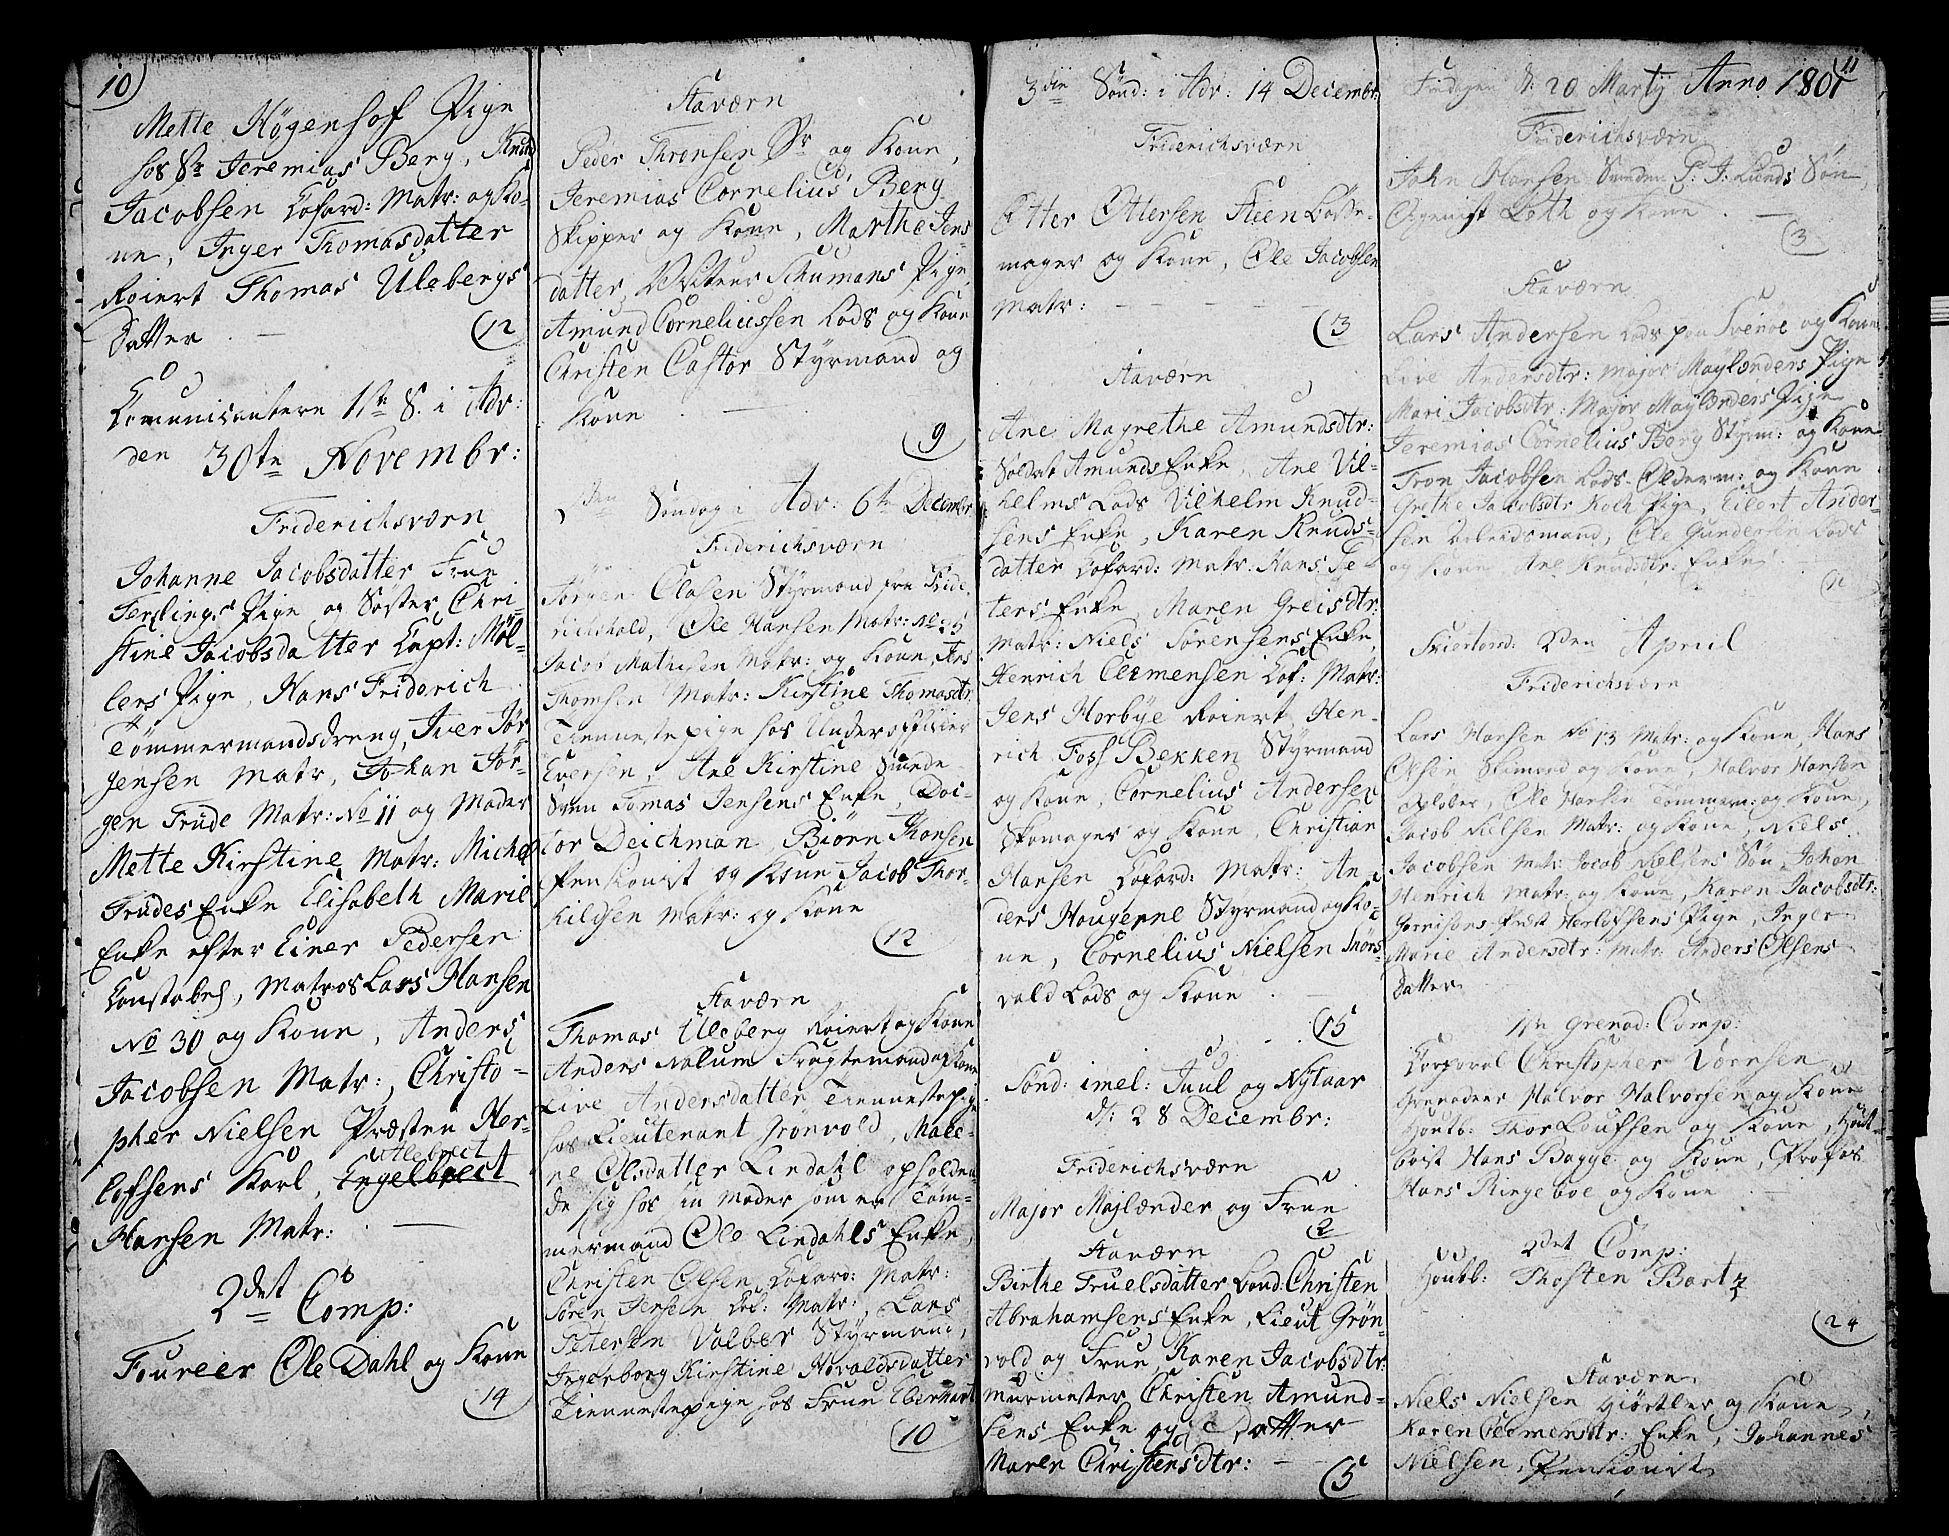 10)
Mette Högenhof Pige
hos Sr Jeremias Berg, Knud
Jacobsen Cofard: Matr: og Ko-
ne, Inger Thomasdatter
Roiert Thomas Ulebergs
Datter. —
(12
Comunicantere 1ste S. i Adv:
den 30te Novembr:
Friderichsværn
Johanne Jacobsdatter Frue
Terslings Pige og Søster Chri-
stine Jacobsdatter Capt: Møl-
lers Pige, Hans Friderich
Tömmermandsdreng, Iver Jör-
gensen Matr, Johan Jör-
gen Trude Matr: No 11 og Moder
Mette Kirstine Matr: Michel
Trudes Enke Elisabeth Marie
Enke efter Einer Pedersen
Constabel, Matros Lars Hansen
No 30 og Kone, Anders
Jacobsen Matr:, Christo-
pher Nielsen Præsten Her-
lofsens Karl, Engelbrect
Hansen Matr: —
2det Comp:
Foureer Ole Dahl og Kone
(14
Staværn
Peder Thronsen Sr og Kone,
Jeremias Cornelius Berg
Skipper og Kone, Marthe Jens
datter, Schumans Pige,
Amund Corneliussen Lods og Kone
Christen Castor Styrmand og
Kone. —
(9
Søndag i Adv: 6te Decembr
Friderichsværn
Jørgen Olasen Styrmand fra Fride
richshald, Ole Hansen Matr: No 25
Jacob Mathisen Matr: og Kone, Jens
Thomsen Matr: Kirstine Thomasdtr
Tiennestepige hos Underofficeer
Eversen, Ane Kirstine
Tomas Jensens Enke, Doc-
tor Deichman, Biörn Thonsen
Pensionist og Kone Jacob Thor-
kildsen Matr: og Kone
(12
Staværn
Thomas Uleberg Roiert og Kone
Anders Nalum Fragtemand og Kone
Live Andersdatter Tiennestepige
hos Lieutenant Grönvold, Male-
ne Olsdatter Lindahl opholden
de sig hos sin Moder som er Töm-
mermand Ole Lindahls Enke,
Christen Olsen Cofard: Matr:
Sören Jensen Cof: Matr:, Lars
Petersen Valbeer Styrmand,
Ingerborg Kirstine Havaldsdatter
Tiennestepige hos Frue Eberhart
(10
3die Sönd: i Adv: 14 Decembr:
Friderichsværn
Otter Ottersen
mager og Kone, Ole Jacobsen
Matr: — — — —
(3
Staværn
Ane Magrethe Amundsdtr:
Soldat Amunds Enke, Ane Vil-
helms Lods Vilhelm Knud-
sens Enke, Karen Knuds-
datter Cofard: Matr: Hans Pe-
ters Enke, Maren Greisdtr:
Matr: Niels Sörensens Enke,
Henrich Clemensen Cof: Matr:
Jens Horbye Roiert, Hen-
rich Foss Bekken Styrmand
og Kone, Cornelius Andersen
Skomager og Kone, Christian
Hansen Cofard: Matr: An-
ders Hougenne Styrmand og Ko-
ne, Cornelius Nielsen Snørs-
vold Lods og Kone. —
(15
Sönd: imel: Juul og Nytaar
d: 28 Decembr:
Friderichsværn
Major Majlænder og Frue
2
Staværn
Birthe Truelsdatter Lond: Christen
Abrahamsens Enke, Lieut Grön-
vold og Frue, Karen Jacobsdtr:
Murmester Christen Amund-
sens Enke og Datter
Maren Christensdtr: — —
(5
11
Fredagen d: 20 Martij Anno 1801
Friderichsværn
John Hansen P: J: Lunds Søn,
Organist Loth og Kone. —
(3
Staværn
Lars Andersen Lods paa Svenöe og Kone
Live Andersdtr: Major Maylænders Pige
Mari Jacobsdtr: Major Maylænders Pige
Jeremias Cornelius Berg Styrm: og Kone
Tron Jacobsen Lods-Olderm: og Kone
Grethe Jacobsdtr Koch Pige, Eilert Ander-
sen Arbeidsmand, Ole Gundersen Lods
og Kone, Ane Knudsdtr: Enke
Skiertorsd: 2den April
Friderichsværn
Lars Hansen No 13 Matr: og Kone, Hans
Olsen og Kone, Halvor Hansen
Ole Hansen Tømmerm: og Kone,
Jacob Nielsen Matr: og Kone, Niels
Jacobsen Matr: Jacob Nielsens Søn, Johan
Henrich Matr: og Kone, Karen Jacobsdtr:
Garnisons-Præst Herlofsens Pige, Inger
Marie Andersdtr: Matr: Anders Olsens
Datter
1ste Grenad: Comp:
Corporal Christopher Vornsen
Grenadeer Halvor Halvorsen og Kone
Houtb: Thor Loufsen og Kone, Hout-
boist Hans Bagge og Kone, Profos
Hans Ringeboe og Kone. —
2det Comp:
Houtb: Thosten Bartz
(24
Staværn
Niels Nielsen Giörtler og Kone,
Karen Clemensdtr: Enke, Johannes
Nielsen, Pensionist